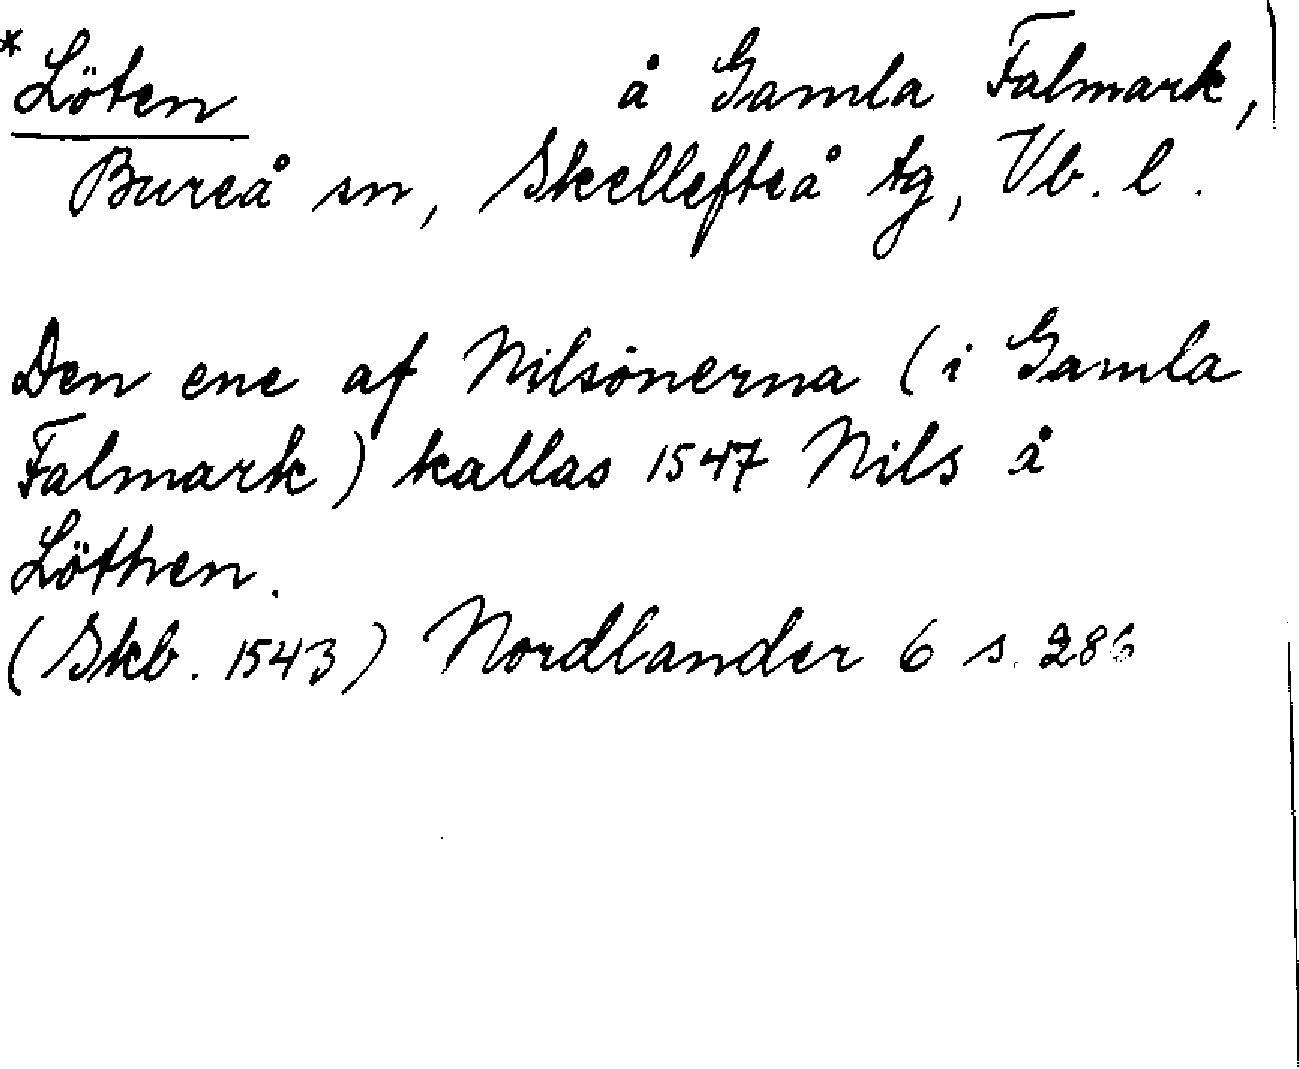 *Löten å Gamla Falmark,
Bureå sn, Skellefteå tg, Vb. l.
Den ene af Nilsönerna (i Gamla
Falmark) kallas 1547 Nils å
Löthen.
(Skb. 1543) Nordlander 6 s. 286